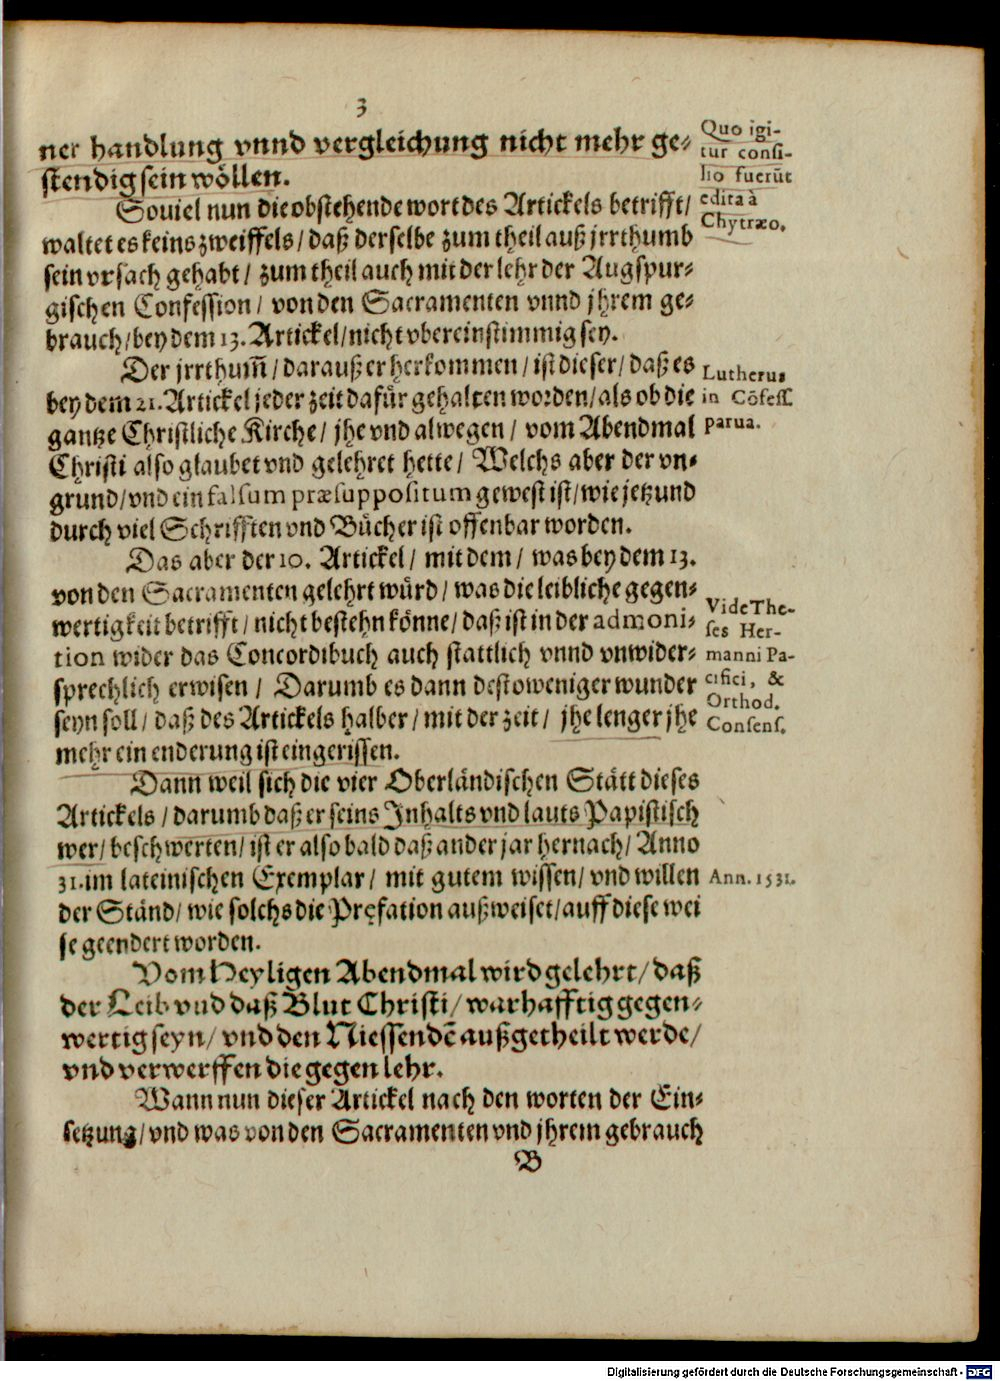 3
ner handlung vnnd vergleichung nicht mehr ge⸗
stendig sein wöllen.
Quo igi-
tur consi-
lio fuerūt
edita à
Chytræo.
Soviel nun die obstehende wort des Artickels betrifft/
waltet es keins zweiffels/ daß derselbe zum theil auß jrrthumb
sein vrsach gehabt/ zum theil auch mit der lehr der Augspur⸗
gischen Confession/ von den Sacramenten vnnd jhrem ge⸗
brauch/ bey dem 13. Artickel/ nicht vbereinstimmig sey.
Der jrrthum̄/ darauß er herkommen/ ist dieser/ daß es
bey dem 21. Artickel jeder zeit dafür gehalten worden/ als ob die
gantze Christliche Kirche/ jhe vnd alwegen/ vom Abendmal
Christi also glaubet vnd gelehret hette/ Welchs aber der vn⸗
grund/ vnd ein falsum præsuppositum gewest ist/ wie jetzund
durch viel Schrifften vnd Bücher ist offenbar worden.
Lutherus
in Cōfess.
parua.
Das aber der 10. Artickel/ mit dem/ was bey dem 13.
von den Sacramenten gelehrt würd/ was die leibliche gegen⸗
wertigkeit betrifft/ nicht bestehn könne/ daß ist in der admoni⸗
tion wider das Concordibuch auch stattlich vnnd vnwider⸗
sprechlich erwisen/ Darumb es dann destoweniger wunder
seyn soll/ daß des Artickels halber/ mit der zeit/ jhe lenger jhe
mehr ein enderung ist eingerissen.
Vide The-
ses Her-
manni Pa-
cifici, &
Orthod.
Consens.
Dann weil sich die vier Oberländischen Stätt dieses
Artickels/ darumb daß er seins Inhalts vnd lauts Papistisch
wer/ beschwerten/ ist er also bald daß ander jar hernach/ Anno
31. im lateinischen Exemplar/ mit gutem wissen/ vnd willen
der Ständ/ wie solchs die Pręfation außweiset/ auff diese wei
se geendert worden.
Ann. 1531.
Vom Heyligen Abendmal wird gelehrt/ daß
der Leib vnd daß Blut Christi/ warhafftig gegen⸗
wertig seyn/ vnd den Niessendē außgetheilt werde/
vnd verwerffen die gegenlehr.
Wann nun dieser Artickel nach den worten der Ein⸗
setzung/ vnd was von den Sacramenten vnd jhrem gebrauch
B
Digitalisierung gefördert durch die Deutsche Forschungsgemeinschaft - DFG